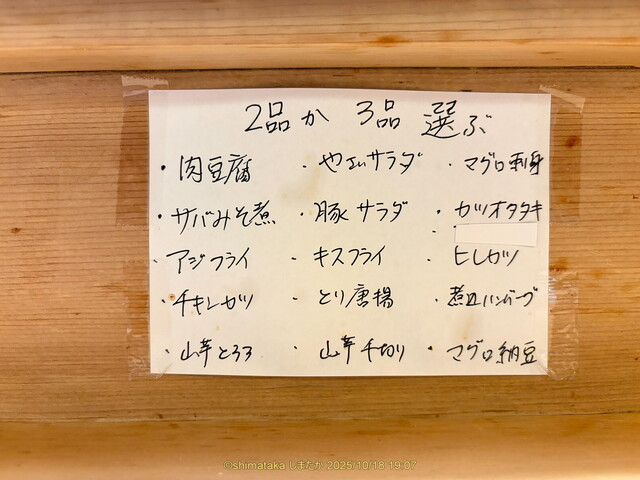 2品か 3品 選ぶ
・肉豆腐 ・やさいサラダ ・マグロ刺身
・サバみそ煮 ・豚サラダ ・カツオタタキ
・アジフライ ・キスフライ ・ヒレカツ
・チキンカツ ・とり唐揚 ・煮込ハンバーグ
・山芋とろろ ・山芋千切り ・マグロ納豆
©shimataka しまたか 2025/10/18 19:07